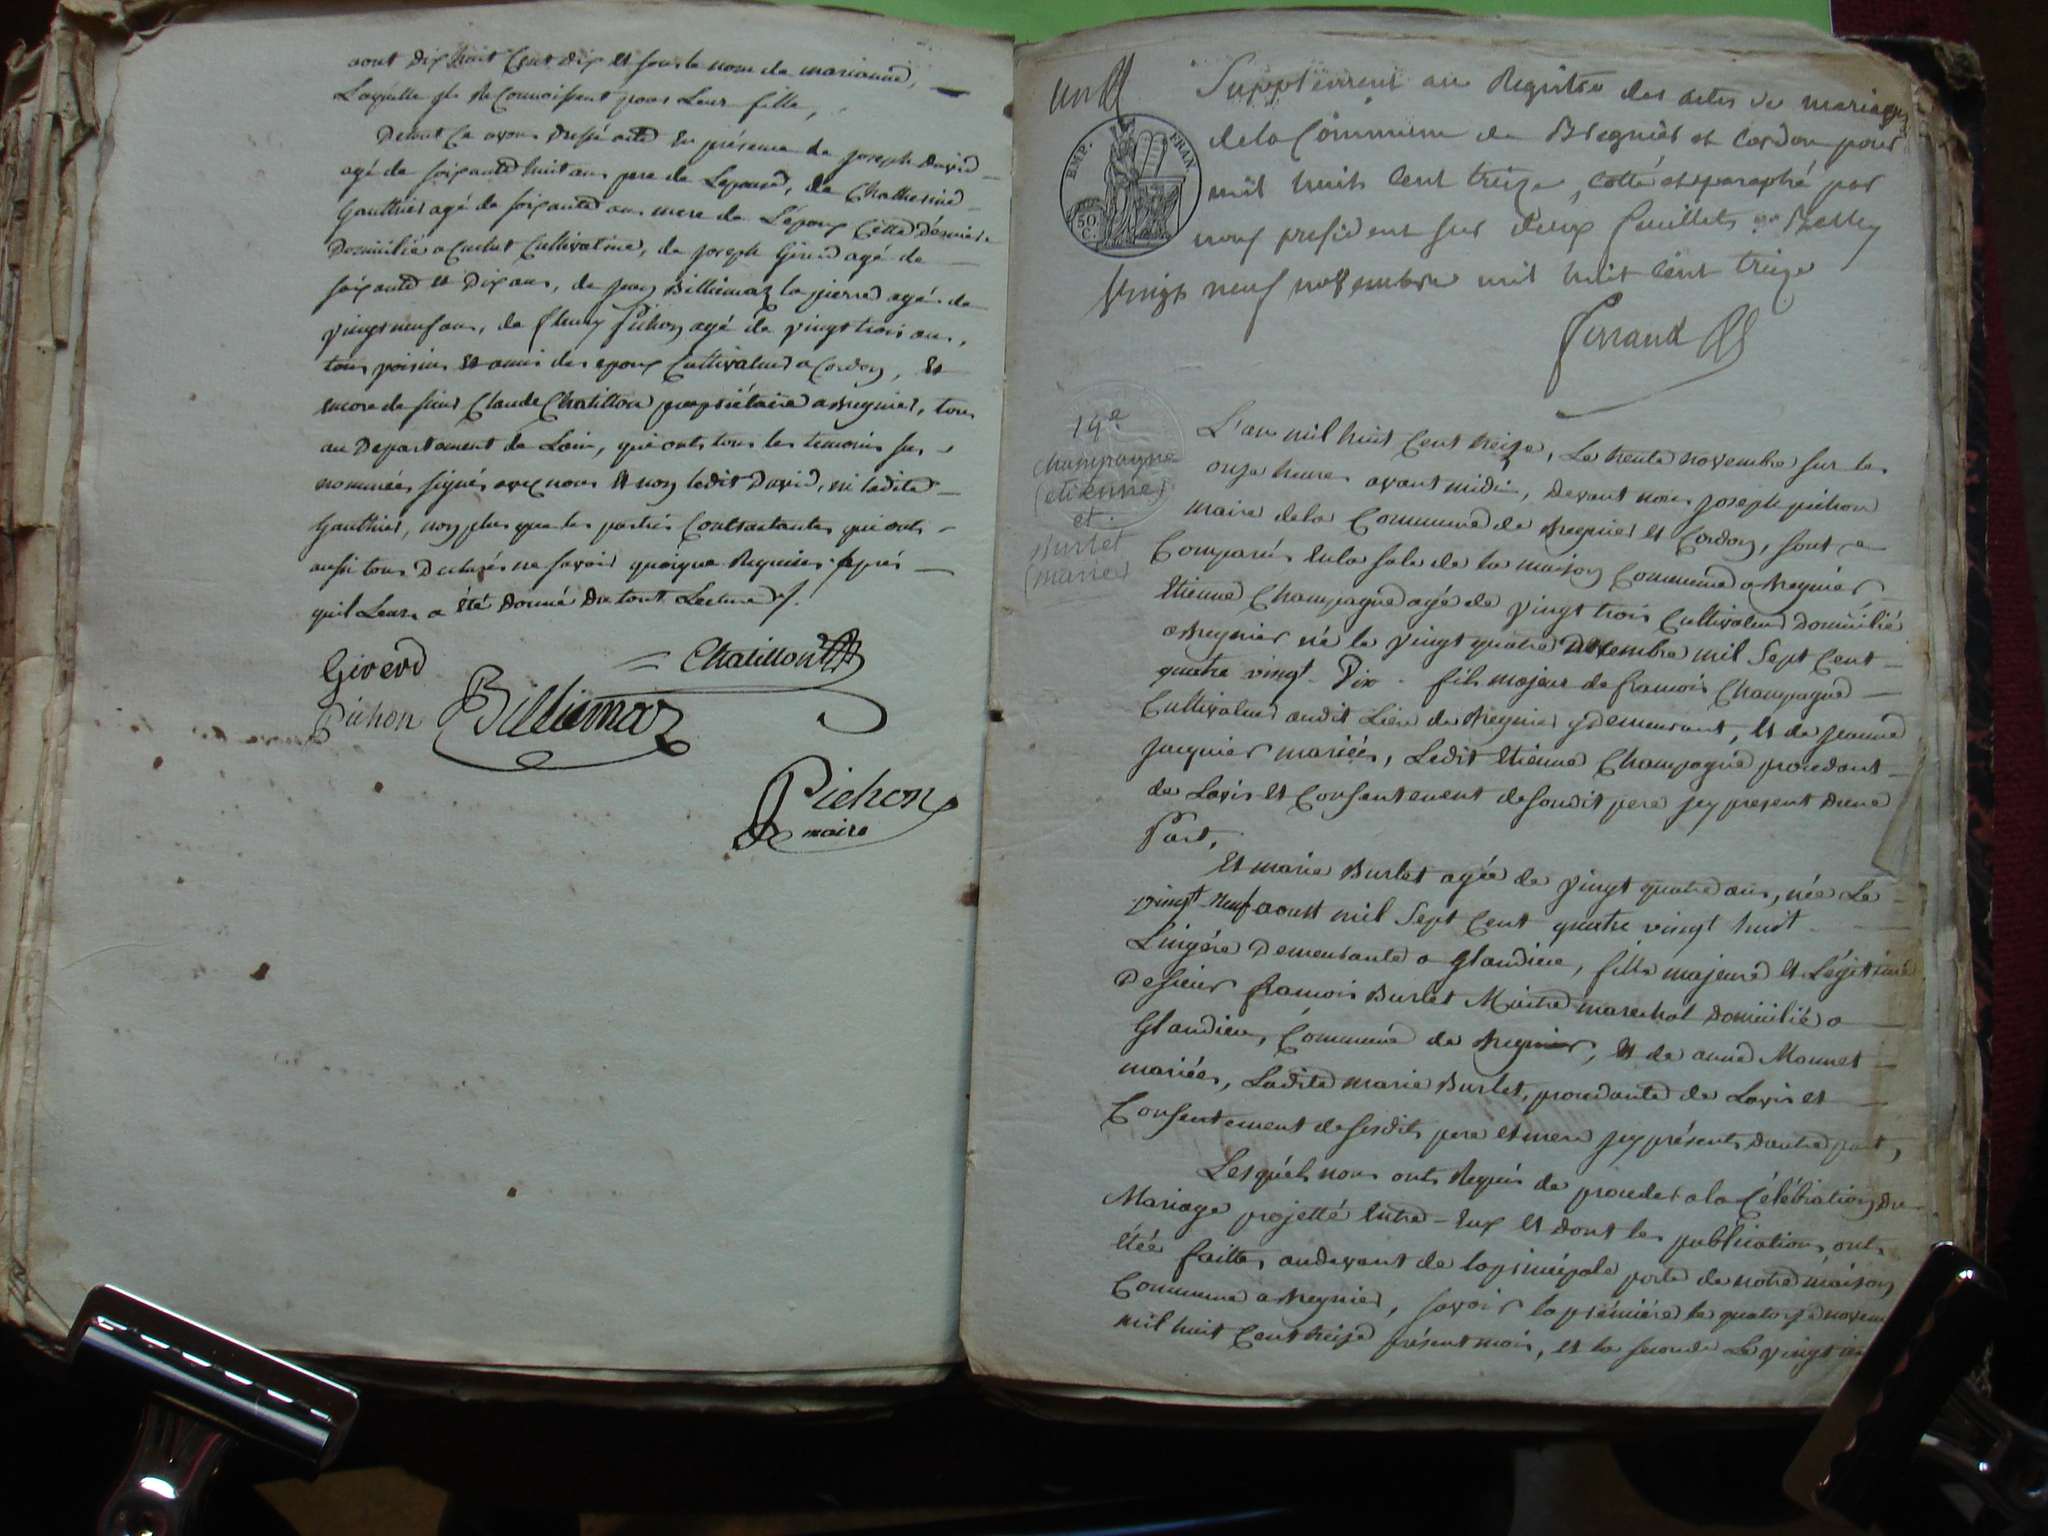 aout dix huit Cent dix et sous le nom de marianne,
Laquelle ils Reconnoissent pour Leur fille,
Detout Ce avons dressé acte En présence de joseph David
agé de soixante huit ans pere de Lepouse, de Chatherine
Gauthier agé de soixante ans mere de L'époux Cette dernière
Domiciliée a Cultivatrice, de joseph Girerd agé de
soixante et Dix ans, de Billiemaz la pierre agé de
vingt neuf ans, de fleury Pichon agé de vingt trois ans,
tous voisins et amis des epoux Cultivateurs a Cordon, Et
encore de sieur Claude Chatillon propriétaire a Bregnier, tous
au Departement de Lain, qui onts tous les temoins sus
nommées signés avec nous Et non ledit David, ni ladite
Gauthier, non plus que les parties Contractantes qui onts
aussi tous Declarés ne savoir quoique Requises. Après
quil Leurs a été Donné Du tout Lecture.
Girerd
Chatillon
Pichon Billiemaz
Pichon
maire
un
Supplément au Registre des actes de mariages
de la Commune de Bregnier et Cordon pour
mil huit Cent treize, Cotté et paraphé par
nous president sur deux feuillets Belley
vingt neuf novembre mil huit Cent treize
Ferrand
EMP. FRAN.
50 C.
14e
champagne
(etienne)
et
Burlet
(marie)
L'an mil huit Cent treize, Le trente novembre sur les
onze heures avant midi, Devant nous joseph pichon
maire dela Commune de Bregnier et Cordon, sont
Comparus En la sale de la maison Commune a Bregnier
Etienne Champagne agé de vingt trois Cultivateur Domicilié
a Bregnier né le vingt quatre novembre mil Sept Cent
quatre vingt Dix. fils majeur de francois Champagne
Cultivateur audit Lieu de Bregnier y Demeurant, Et de jeanne
jacquier mariées, Ledit Etienne Champagne procedant
de Lavis Et Consentement desondit pere jcy present Dune
Part,
Et marie Burlet agée de vingt quatre ans, née Le
vingt neuf aoust mil Sept Cent quatre vingt huit
Lingére Demeurante a Glandieu, fille majeure et Légitime
De sieur francois Burlet Maitre marechal Domicilié a
Glandieu, Commune de Bregnier, Et de anne Monnet
mariées, Ladite marie Burlet, procedante de Lavis et
Consentement desesdits pere et mere jcy présents Dautre part,
Lesquels nous onts Requis de proceder a la Célébration Du
Mariage projetté Entre-Eux Et dont les publications onts
étée faittes audevant de la principale porte de notre maison
Commune a Bregnier, savoir la première le quatorze novem
mil huit Cent treize présent mois, Et la seconde Le vingt